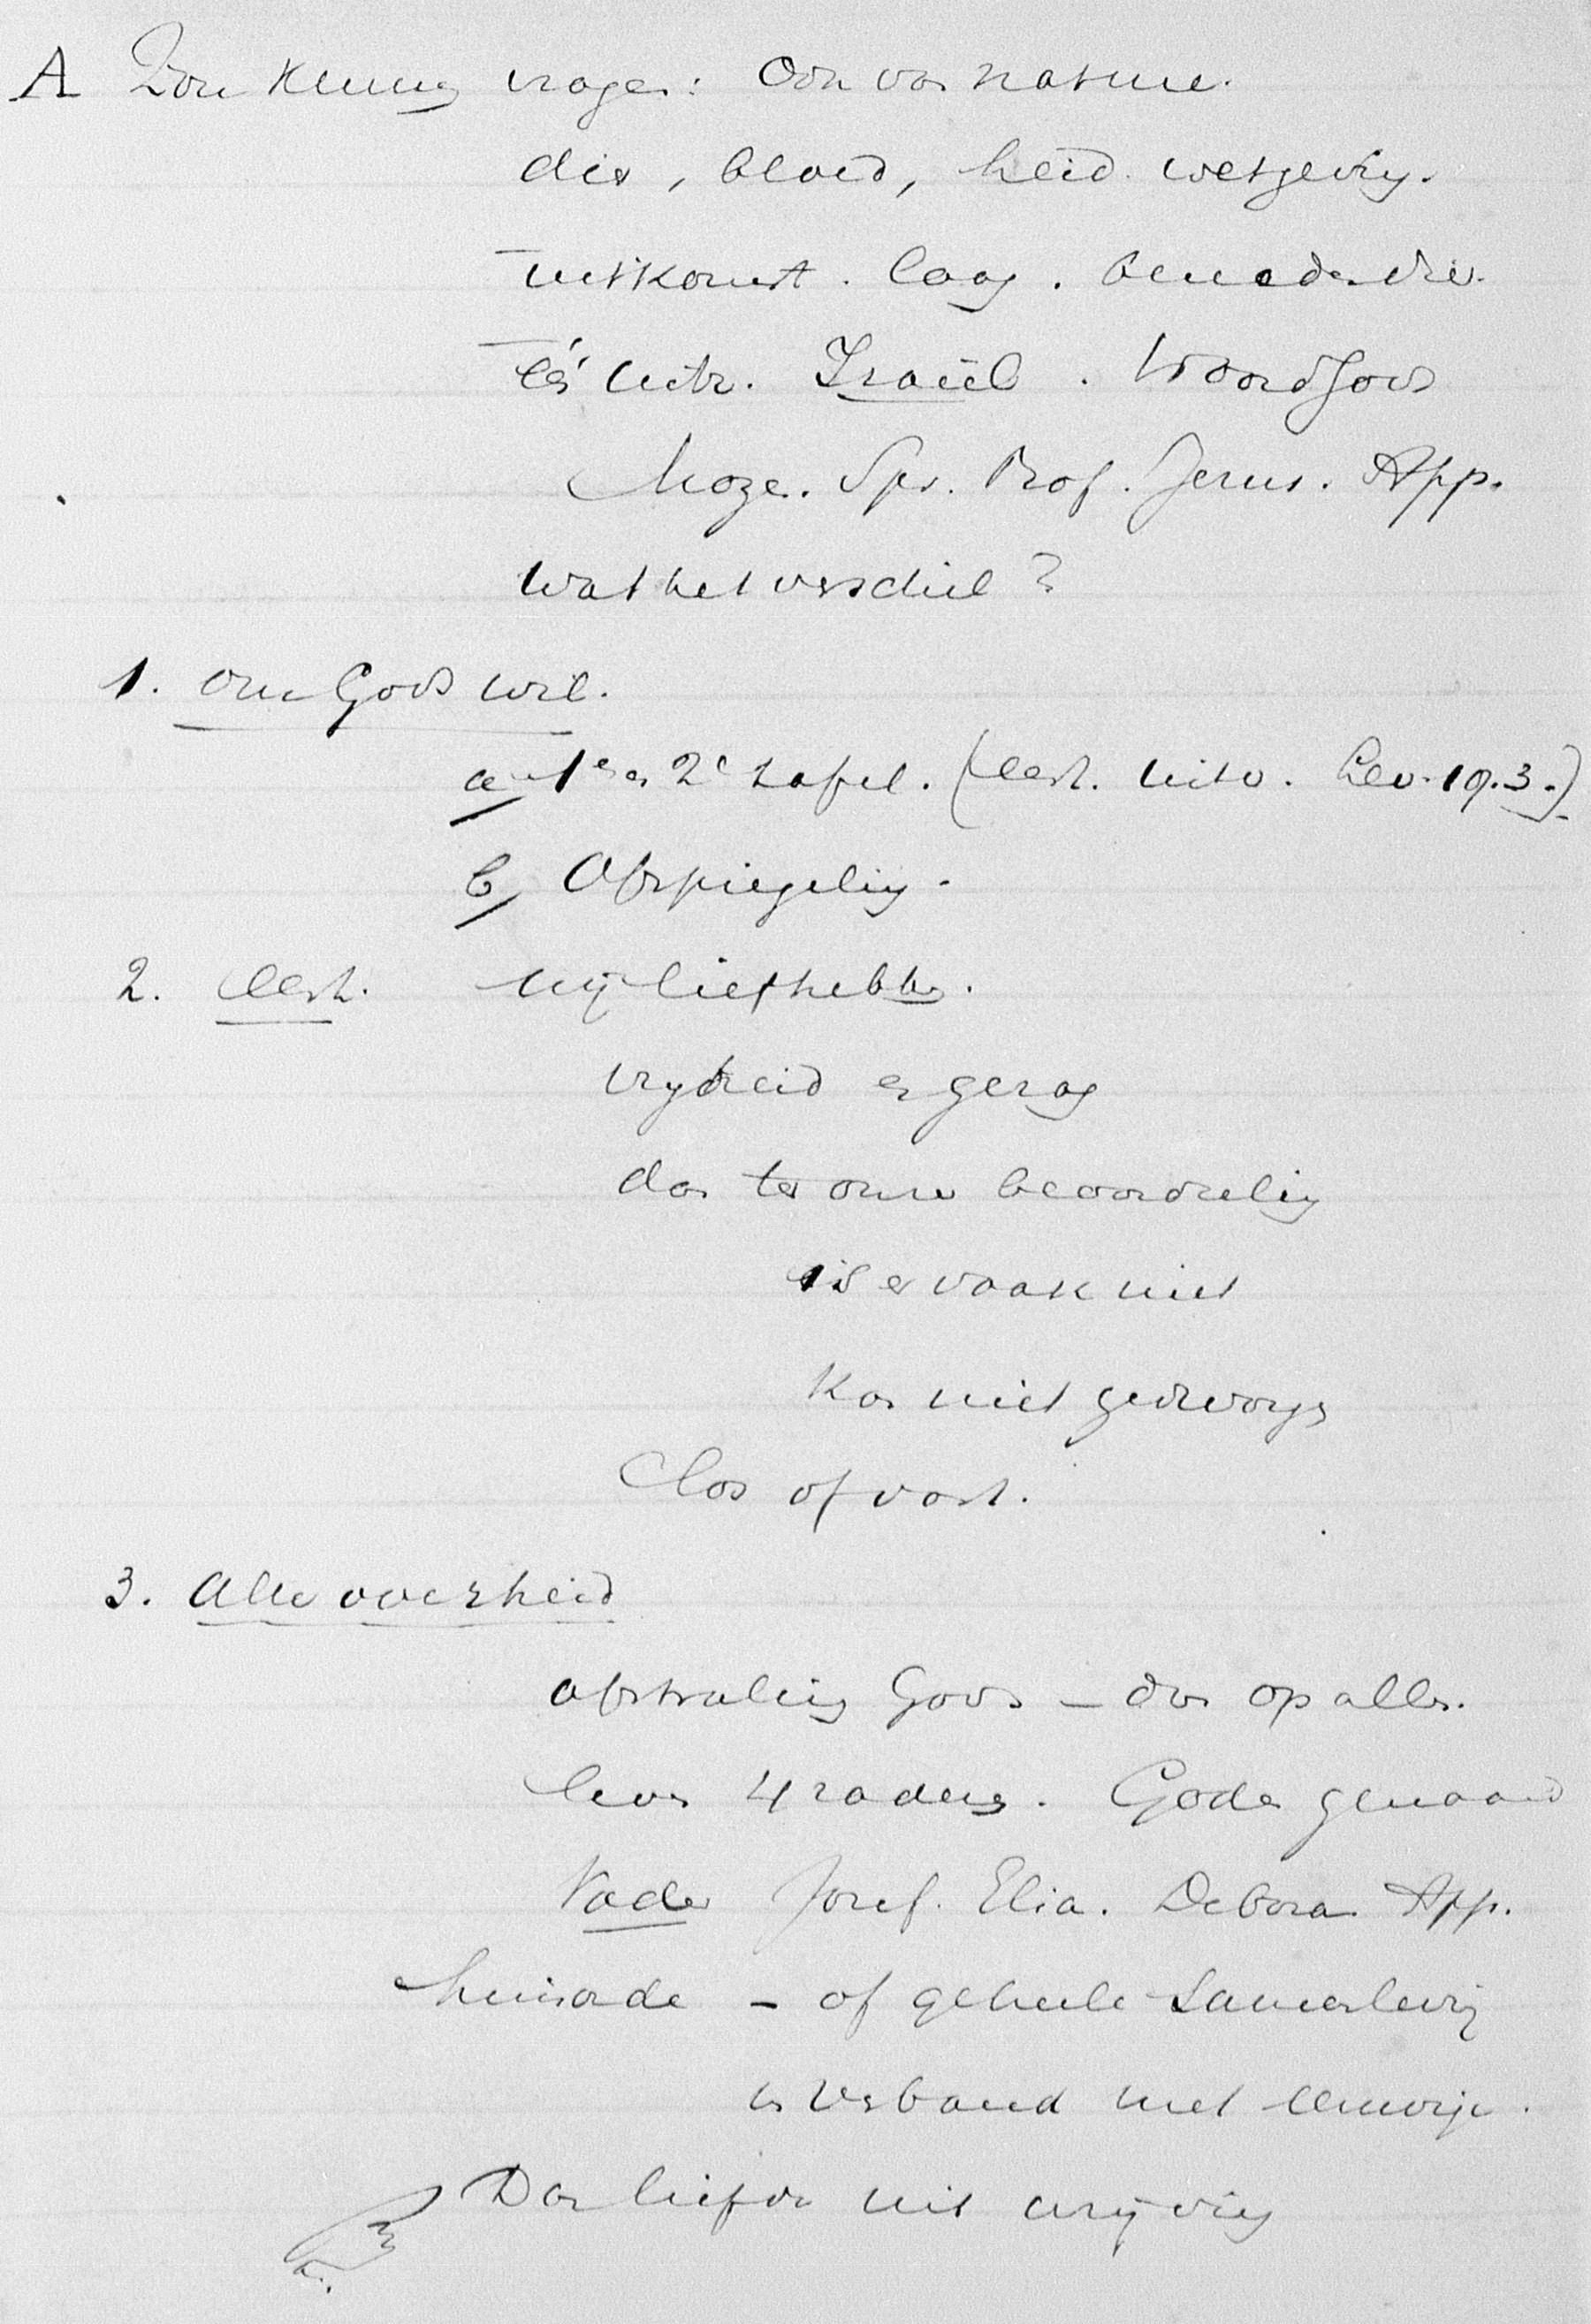 A Zou kunnen vragen: Ook van nature.
dier, bloed, heid. wetgeving.
uitkomst. laag. beneden dier.
én uitr. Israël. Woord Gods
Moze. Spr. Prof. Jerus. App.
wat het verschil?
1. om Gods wil.
a 1e en 2e tafel. (eerb. uitv. Lev. 19.3.)
b, Afspiegeling.
2. eerb. wij liefhebben.
vrijheid en gezag
dan ter onze beoordeling
is er vaak niet
kan niet gedwongen
los of vast.
3. Alle overheid
afstraling Gods – dus op allen.
leven 4 raderen. Goden genaamd
Vader Josef. Elia. Debora. App.
huisorde – of geheele samenleving
in verband met eeuwige.
Dan liefde uit wrijving